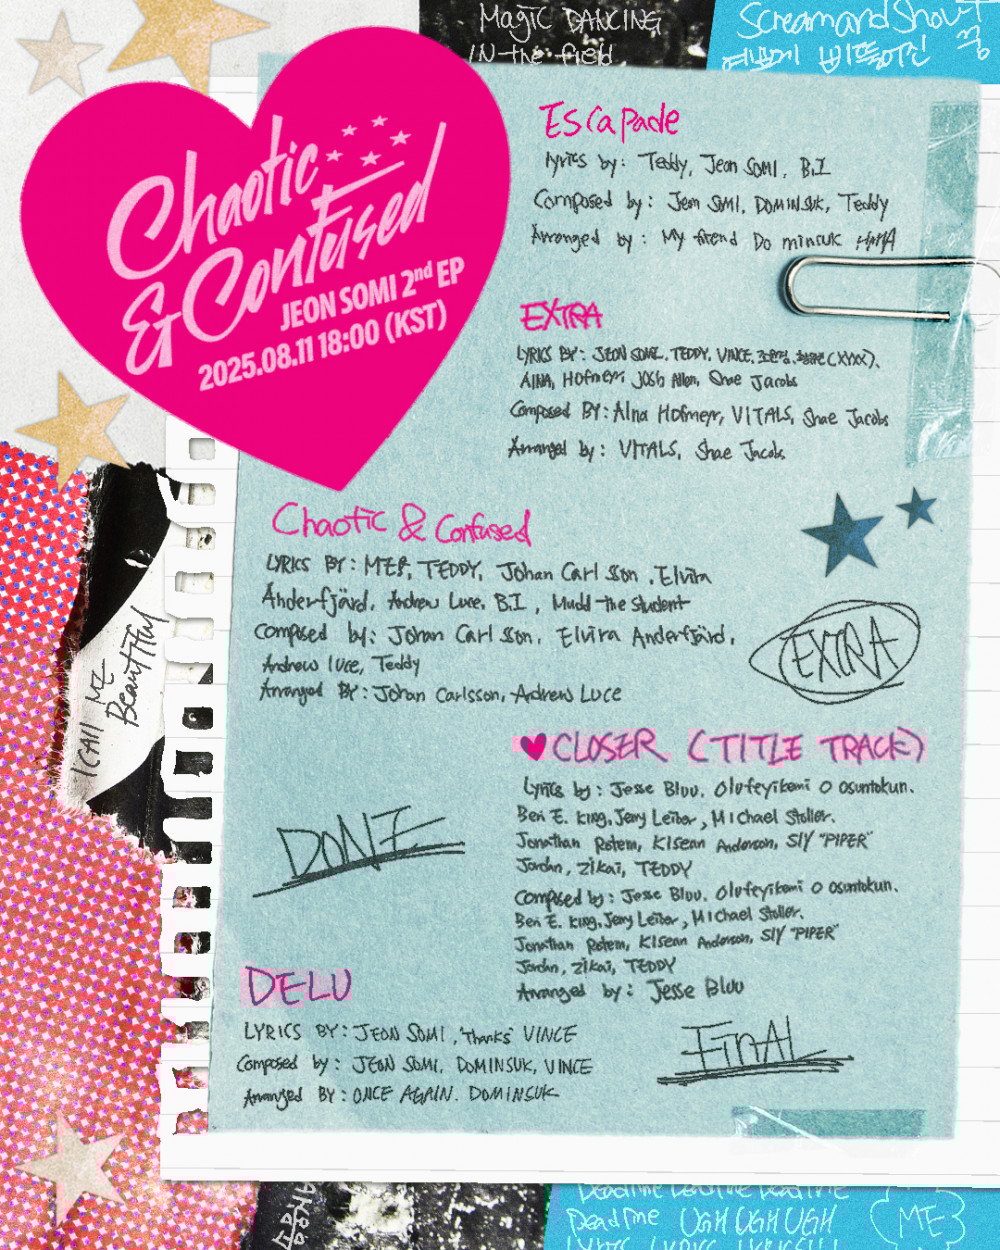 Magic DANCING
IN the field
ScreamandShout
예쁘게 삐뚤어진
Chaotic
& Confused
JEON SOMI 2nd EP
2025.08.11 18:00 (KST)
Escapade
Lyrics by: Teddy, Jeon SOMI, B.I
Composed by: Jeon SOMI, DOMINSUK, Teddy
Arranged by: My friend Do minsuk HAHA
EXTRA
LYRICS BY: JEON SOMI, TEDDY, VINCE, (XYXX),
AINA, Hofmeyr, Josh Allen, Shae Jacobs
Composed BY: AIna Hofmeyr, VITALS, Shae Jacobs
Arranged by: VITALS, Shae Jacobs
Chaotic & Confused
LYRICS BY: ME!!, TEDDY, Johan Carlsson, Elvira
Anderfjärd, Andrew Luce, B.I, Mudd the student
Composed by: Johan Carlsson, Elvira Anderfjärd,
Andrew luce, Teddy
Arranged BY: Johan Carlsson, Andrew Luce
I CAll ME
Beautiful
EXTRA
♥CLOSER (TITLE TRACK)
Lyrics by: Jesse Bluu, Olufeyikemi O Osuntokun,
Ben E. King, Jerry Leiber, Michael Stoller,
Jonathan Rotem, Kisean Anderson, SlY "PIPER"
Jordan, Zikai, TEDDY
Composed by: Jesse Bluu, Olufeyikemi O Osuntokun,
Ben E. King, Jerry Leiber, Michael Stoller,
Jonathan Rotem, Kisean Anderson, SlY "PIPER"
Jordan, Zikai, TEDDY
Arranged by: Jesse Bluu
DONE
DELU
LYRICS BY: JEON SOMI, "Thanks" VINCE
Composed by: JEON SOMI, DOMINSUK, VINCE
Arranged BY: ONCE AGAIN. DOMINSUK
FinAl
Deadline Deadline Deadline
Deadline UGH UGH UGH
(ME)
LYRICS LYRICS